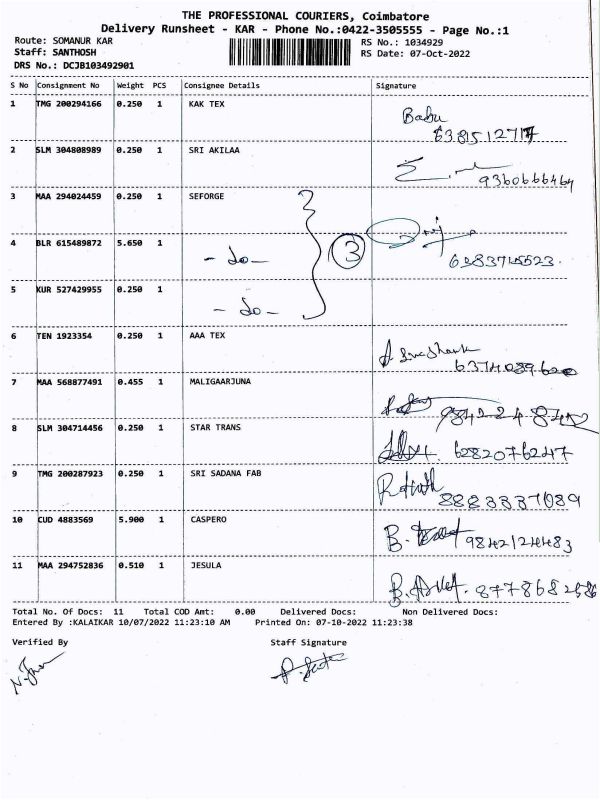 THE PROFESSIONAL COURIERS, Coimbatore
Delivery Runsheet - KAR - Phone No.:0422-3505555 - Page No.:1
Route: SOMANUR KAR
RS No.: 1034929
Staff: SANTHOSH
RS Date: 07-Oct-2022
DRS No.: DCJB103492901
S No Consignment No Weight PCS Consignee Details Signature
1 TMG 200294166 0.250 1 KAK TEX
Babu
2 SLM 304808989 0.250 1 SRI AKILAA
9360666464
3 MAA 294024459 0.250 1 SEFORGE
4 BLR 615489872 5.650 1
- do - 3
5 KUR 527429955 0.250 1
- do -
6 TEN 1923354 0.250 1 AAA TEX
7 MAA 568877491 0.455 1 MALIGAARJUNA
8 SLM 304714456 0.250 1 STAR TRANS
6282076247
9 TMG 200287923 0.250 1 SRI SADANA FAB
10 CUD 4883569 5.900 1 CASPERO
11 MAA 294752836 0.510 1 JESULA
Total No. Of Docs: 11 Total COD Amt: 0.00 Delivered Docs: Non Delivered Docs:
Entered By :KALAIKAR 10/07/2022 11:23:10 AM Printed On: 07-10-2022 11:23:38
Verified By Staff Signature